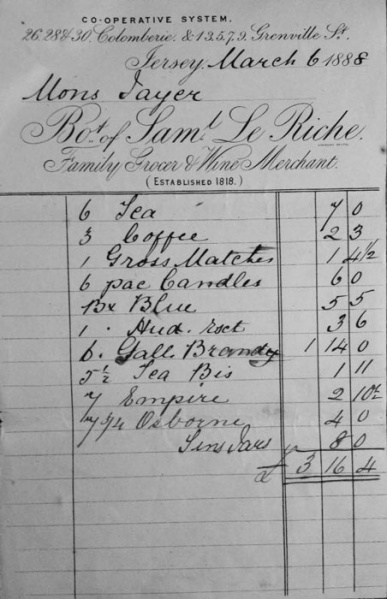 CO-OPERATIVE SYSTEM.
26.28&30. Colomberie. & 1.3.5.7.9. Grenville St.
Jersey. March 6 1888
Mons Tayer
Bot. of Saml. Le Riche.
Family Grocer & Wine Merchant.
(ESTABLISHED 1818.)
6 Tea 7 0
3 Coffee 2 3
1 Gross Matches 1 4½
6 pac Candles 6 0
Bx Blue 5 5
1 3 6
6. Gall Brandy 1 14 0
5½ Tea Bis 1 11
7 Empire 2 10½
7 3/4 Osborne 4 0
8 0
3 16 4